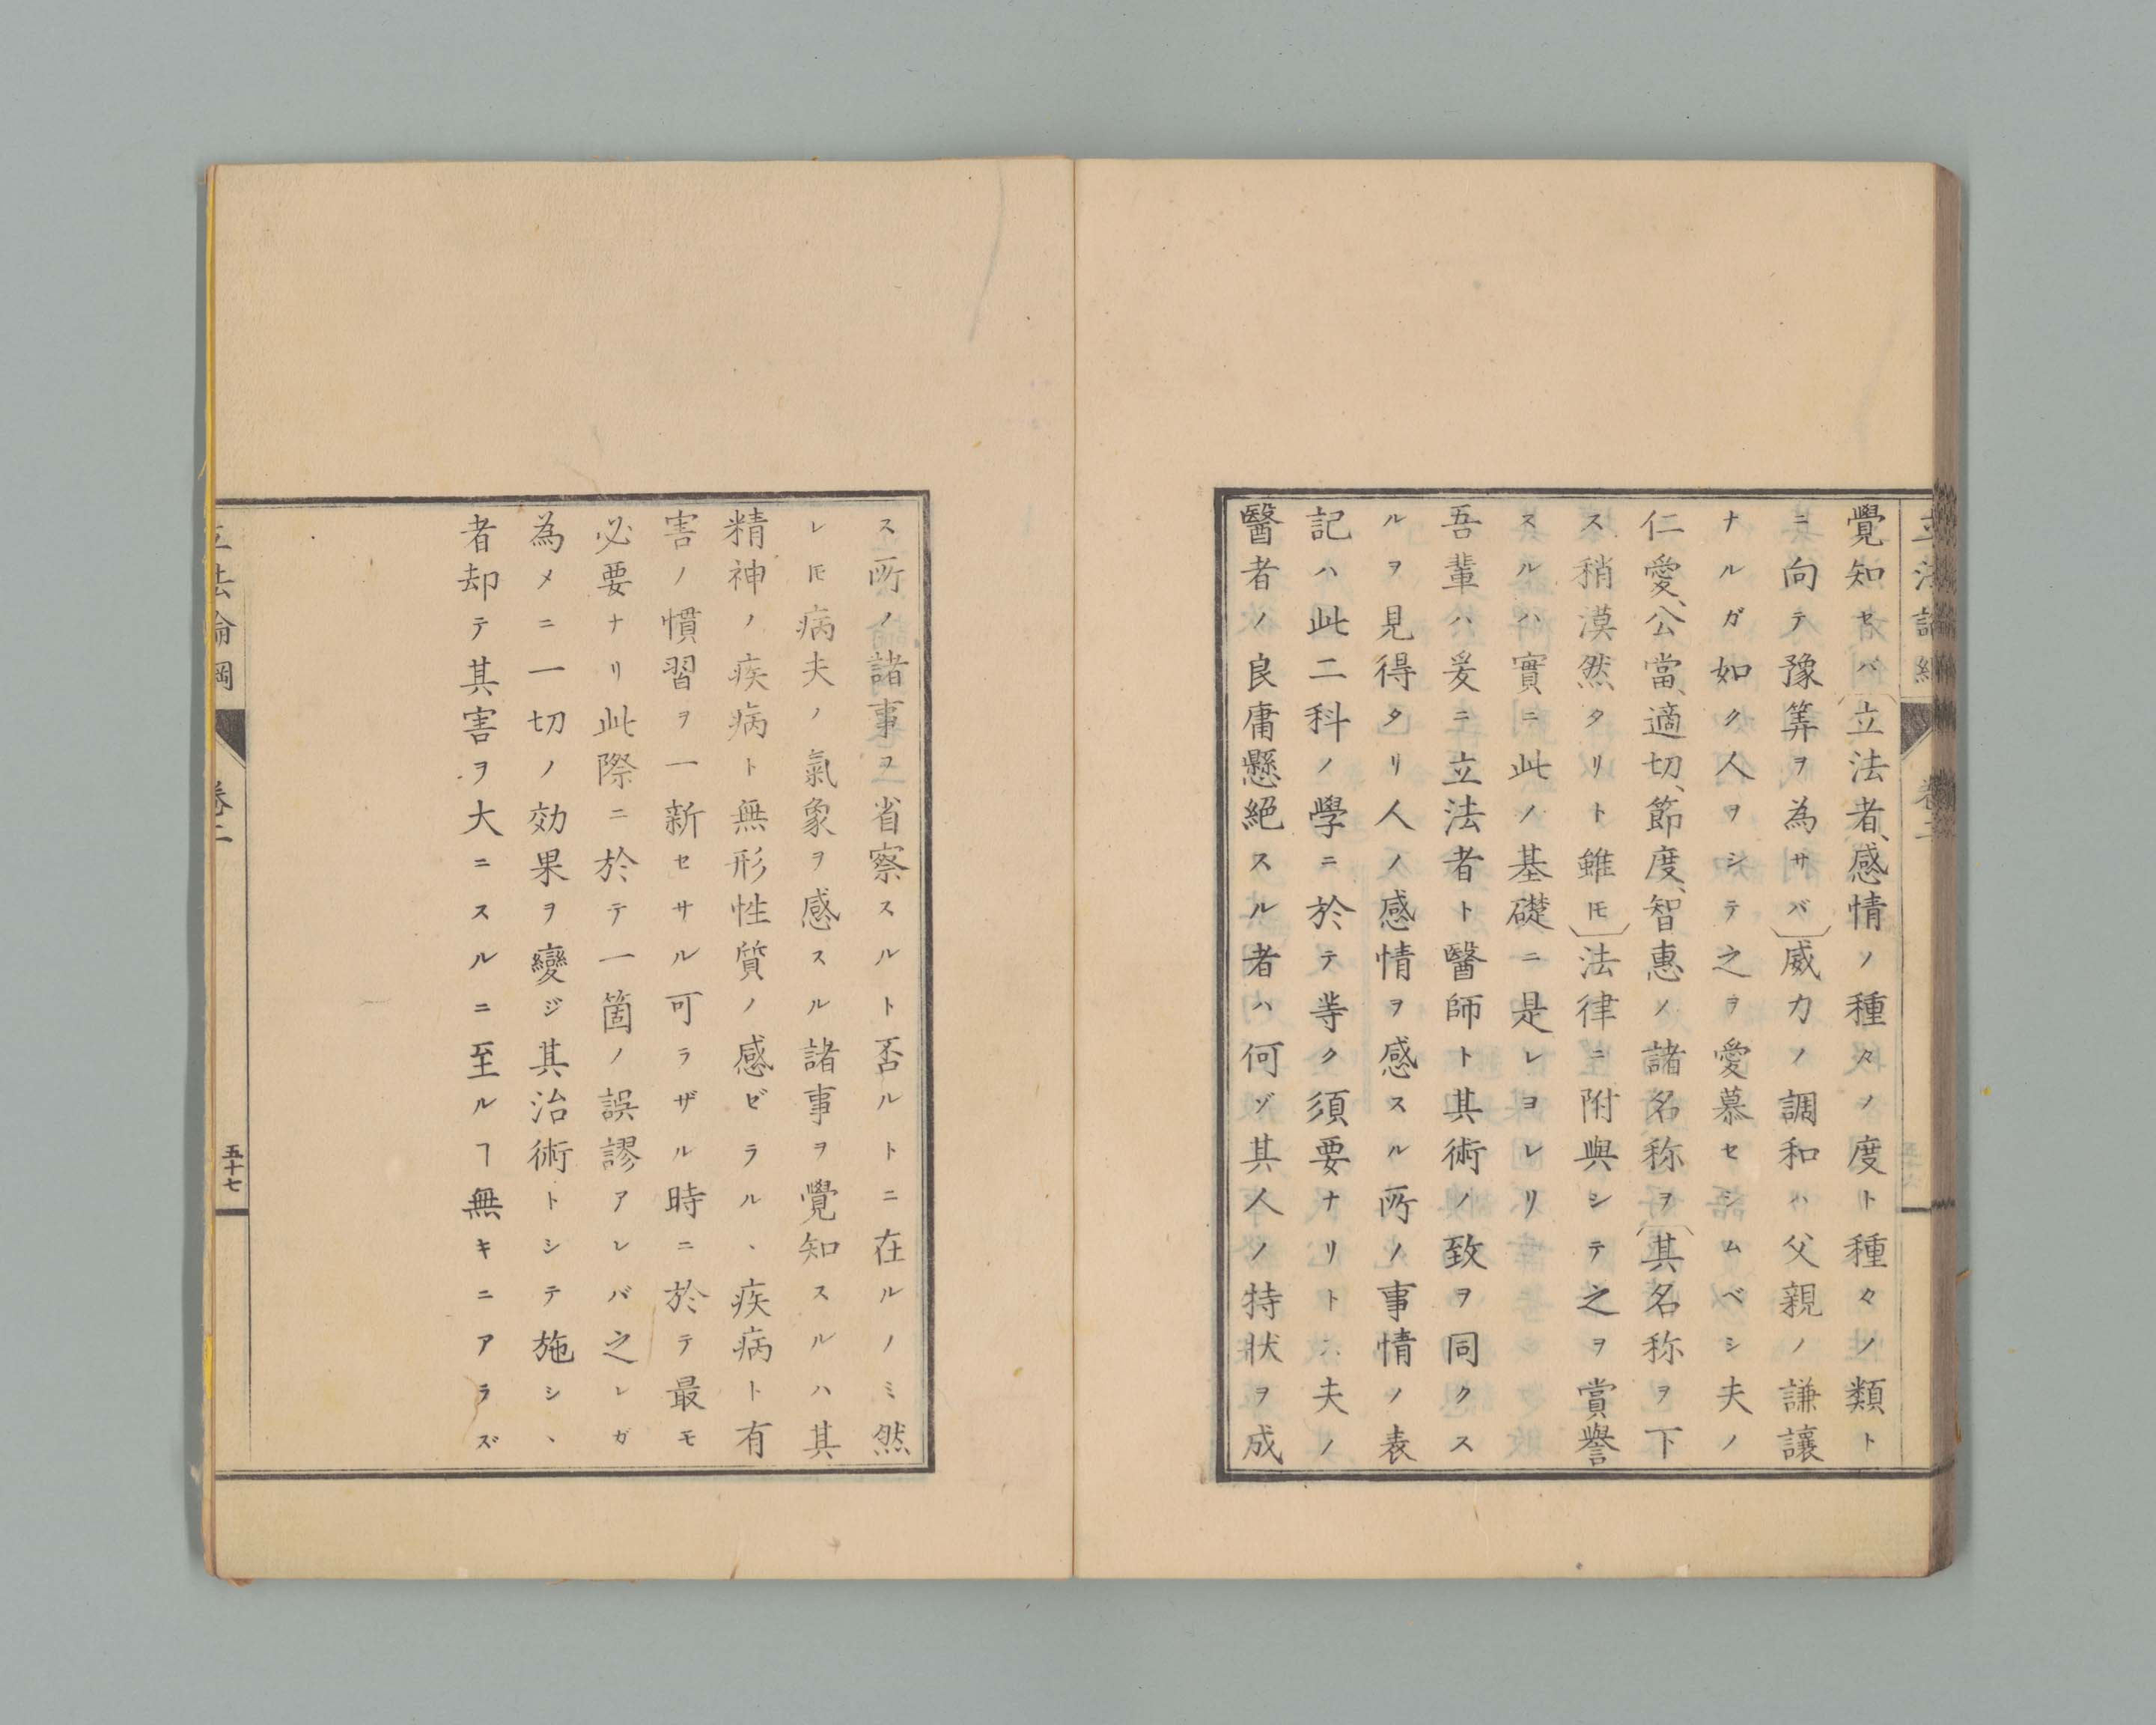 覺知セバ（立法者、感情ノ種々ノ度ト種々ノ類ト
ニ向テ豫筭ヲ為サバ）威力ノ調和ハ父親ノ謙讓
ナルガ如ク人ヲシテ之ヲ愛慕セシムベシ夫ノ
仁愛、公當、適切、節度、智惠ノ諸名称ヲ（其名称ヲ下
ス稍漠然タリト雖𪜈）法律ニ附與シテ之ヲ賞譽
スルハ實ニ此ノ基礎ニ是レヨレリ
吾輩ハ爰ニ立法者ト醫師ト其術ノ致ヲ同クス
ルヲ見得タリ人ノ感情ヲ感スル所ノ事情ノ表
記ハ此二科ノ學ニ於テ㝳ク須要ナリトニ夫ノ
醫者ノ良庸懸絕スル者ハ何ゾ其人ノ特狀ヲ成
ス所ノ諸事ヲ省察スルト否ルトニ在ルノミ然
レ𪜈病夫ノ氣象ヲ感スル諸事ヲ覺知スルハ其
精神ノ疾病ト無形性質ノ感ゼラルヽ疾病ト有
害ノ慣習ヲ一新セサル可ラザル時ニ於テ最モ
必要ナリ此際ニ於テ一箇ノ誤謬アレバ之レガ
為メニ一切ノ効果ヲ變ジ其治術トシテ施シヽ
者却テ其害ヲ大ニスルニ至ルヿ無キニアラズ
立法論綱
卷二
五十七